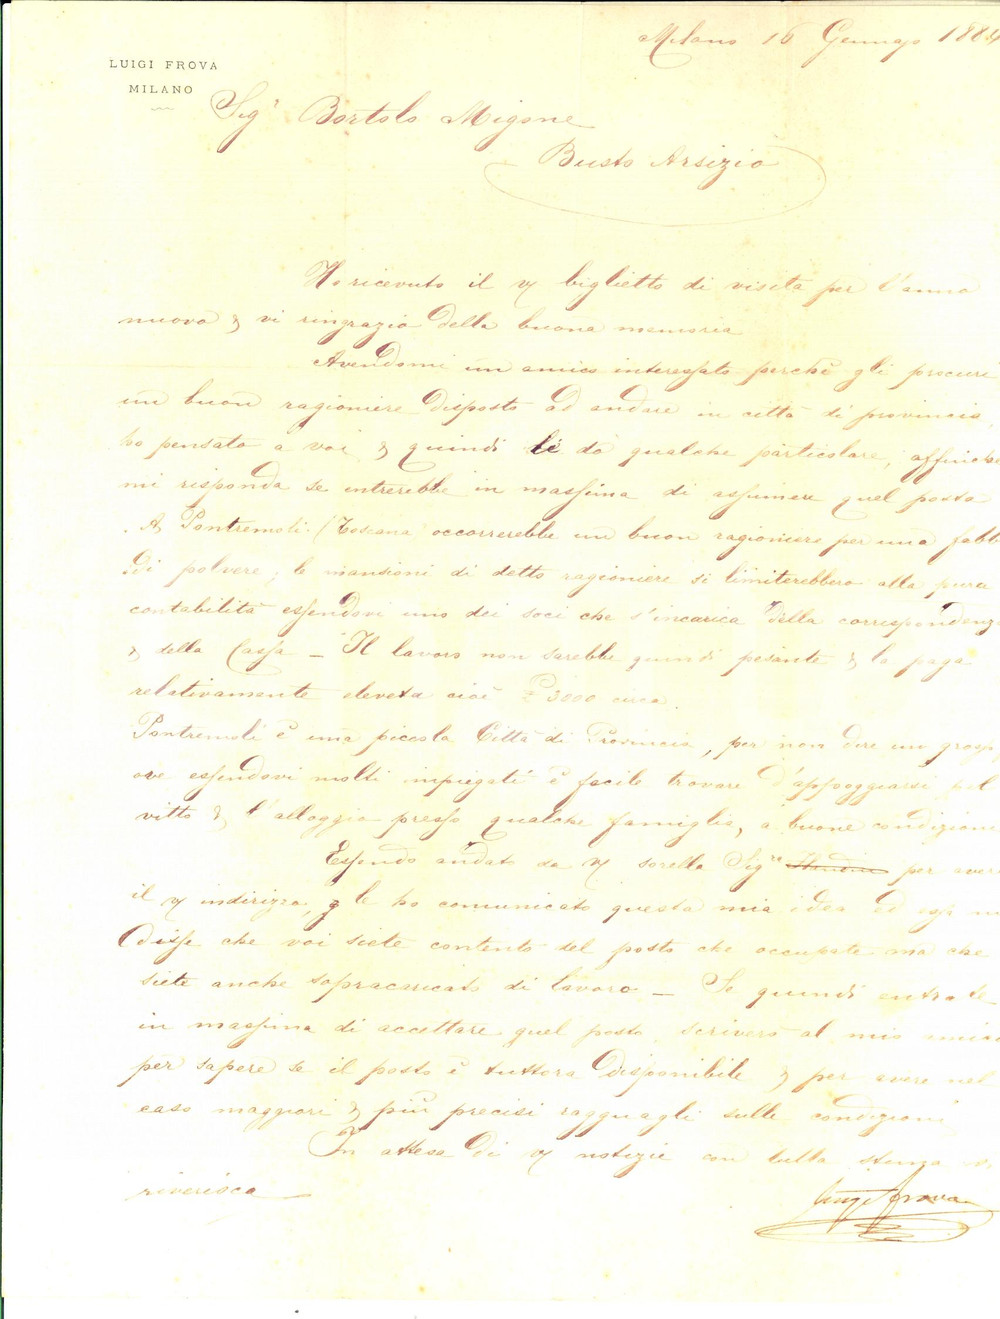 Milano 16 Gennajo 1884
LUIGI FROVA
MILANO
Sig.r Bortolo Migone
Busto Arsizio
Ho ricevuto il vs biglietto di visita per l'anno
nuovo & vi ringrazio della buona memoria
Avendomi un amico interessato perchè gli procuri
un buon ragioniere disposto ad andare in città di provincia,
ho pensato a voi & quindi le dò qualche particolare, affinchè
mi risponda se entrerebbe in massima di assumere quel posto
. A Pontremoli (Toscana occorrerebbe un buon ragioniere per una fabb
di polvere; le mansioni di detto ragioniere si limiterebbero alla pura
contabilità essendovi uno dei soci che s'incarica della corrispondenza
& della Cassa — Il lavoro non sarebbe quindi pesante & la paga
relativamente elevata cioè £ 3000 circa.
Pontremoli è una piccola Città di Provincia, per non dire un gross
ove essendovi molti impiegati è facile trovare d'appoggiarsi pel
vitto & l'alloggio presso qualche famiglia, a buone condizioni
Essendo andato da vs sorella Sig.ra per avere
il vs indirizzo, le ho comunicato questa mia idea ed essa m
disse che voi siete contento del posto che occupate ma che
siete anche sopracaricato di lavoro — Se quindi entrate
in massima di accettare quel posto, scriverò al mio amico
per sapere se il posto è tuttora disponibile & per avere nel
caso maggiori & più precisi ragguagli sulle condizioni
In attesa di vs notizie con tutta stima vi
riverisco —
Luigi Frova